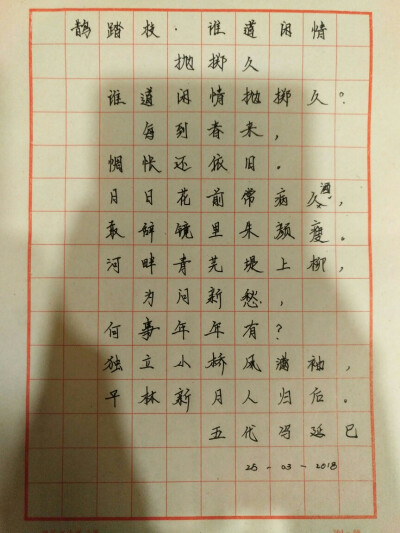 鹊踏枝·谁道闲情
抛掷久
谁道闲情抛掷久?
每到春来,
惆怅还依旧。
日日花前常病酒,
敢辞镜里朱颜瘦。
河畔青芜堤上柳,
为问新愁,
何事年年有?
独立小桥风满袖,
平林新月人归后。
五代冯延巳
25-03-2018